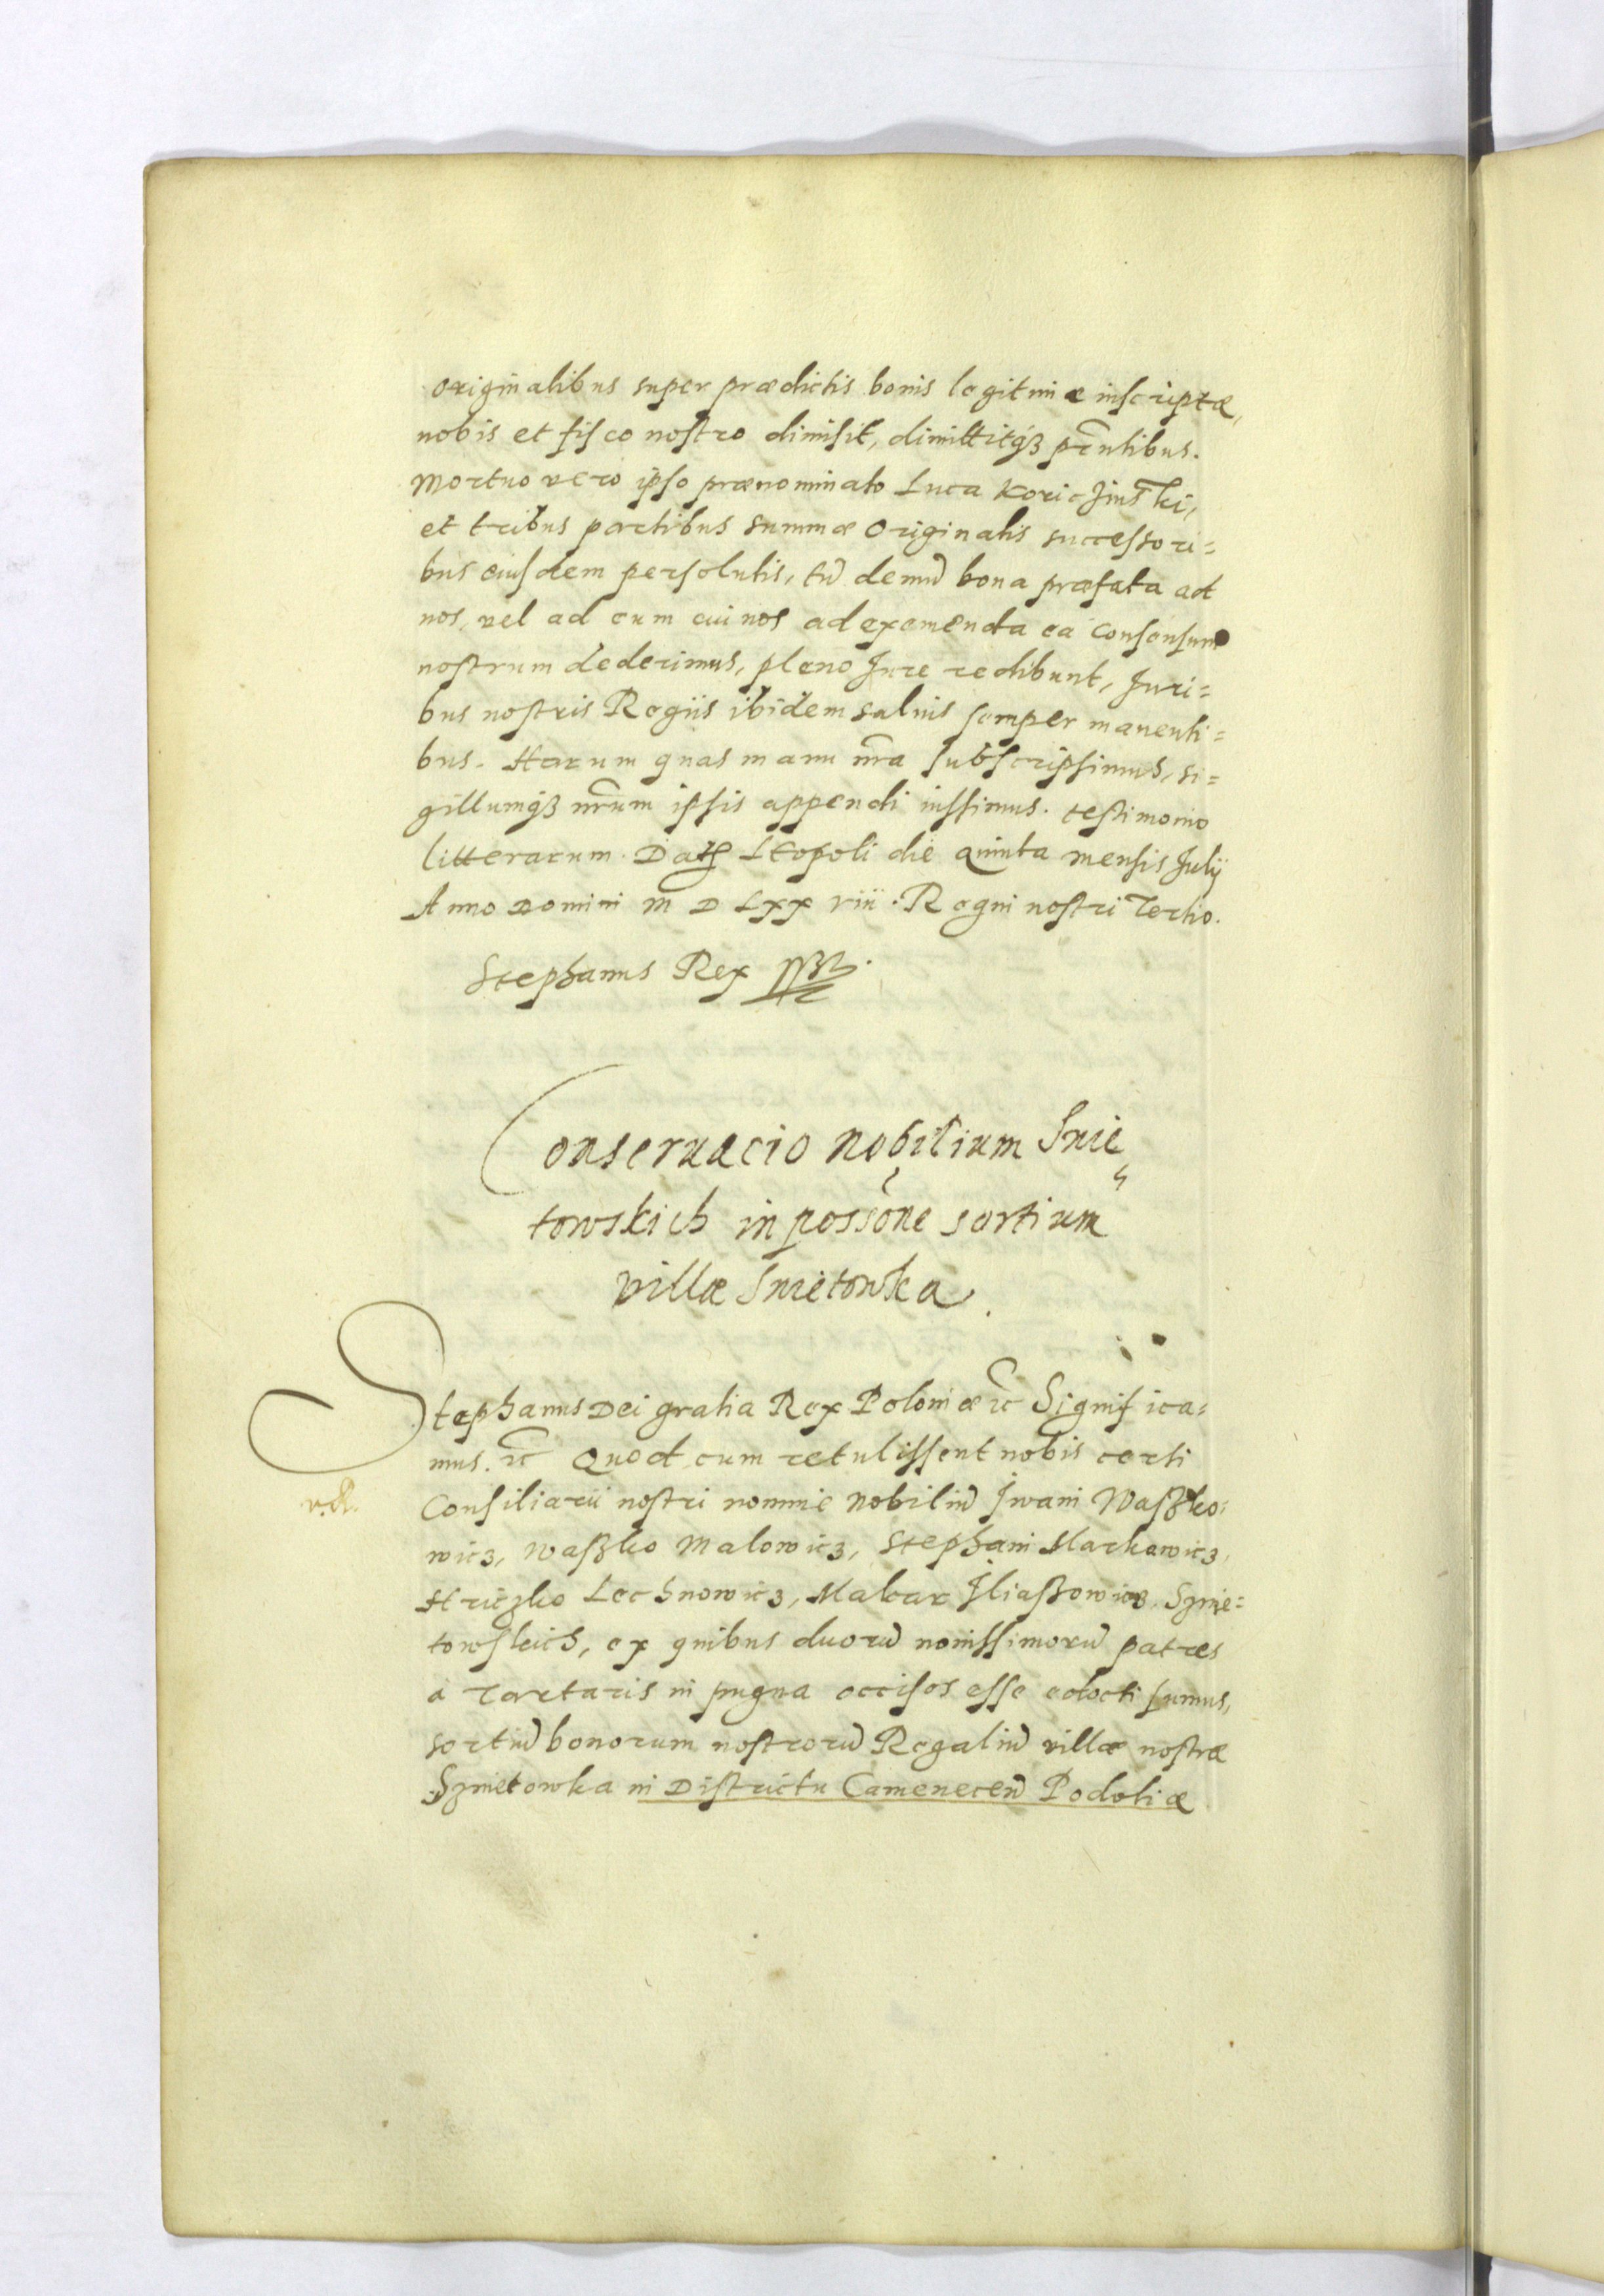 originalibus super prædictis bonis legitimæ inscriptæ,
nobis et fisco nostro dimisit, dimittitqȝ pr̃ntibus.
Mortuo vero ipso prænominato Luca Koriczinski,
et tribus partibus summæ originalis successori=
bus eiusdem persolutis, tũ demũ bona præfata ad
nos, vel ad eum cui nos ad exemenda ea consensum
nostrum dederimus, pleno Jure redibunt, Juri=
bus nostris Regiis ibidem salvis semper manenti=
bus. Harum quas manu nr̃a subscripsimus, si=
gillumqȝ nr̃um ipsis appendi iussimus. testimonio
litterarum. Datꝭ Leopoli die Quinta mensis Julij
Anno Domini M D LXX viii. Regni nostri Tertio.
Stephanus Rex
Conseruacio nobilium Snie
towskich in possõne sortium
villæ Snietowka.
Stephanus Dei gratia Rex Poloniæ ꝛc̃ Significa=
mus. ꝛc̃ Quod cum retulissent nobis certi
Consiliarii nostri nomine nobiliũ Jwani Waszko=
wicz, Waszko Malowicz, Stephani Markowicz,
Hriczko Lechnowicz, Makar Jliaszowicz, Sznie=
towskich, ex quibus duorũ novissimorũ patres
a Tartaris in pugna occisos esse edocti sumus,
sortiũ bonorum nostrorũ Regaliũ villæ nostræ
Sznietowka in Districtu Camenecen̄ Podoliæ